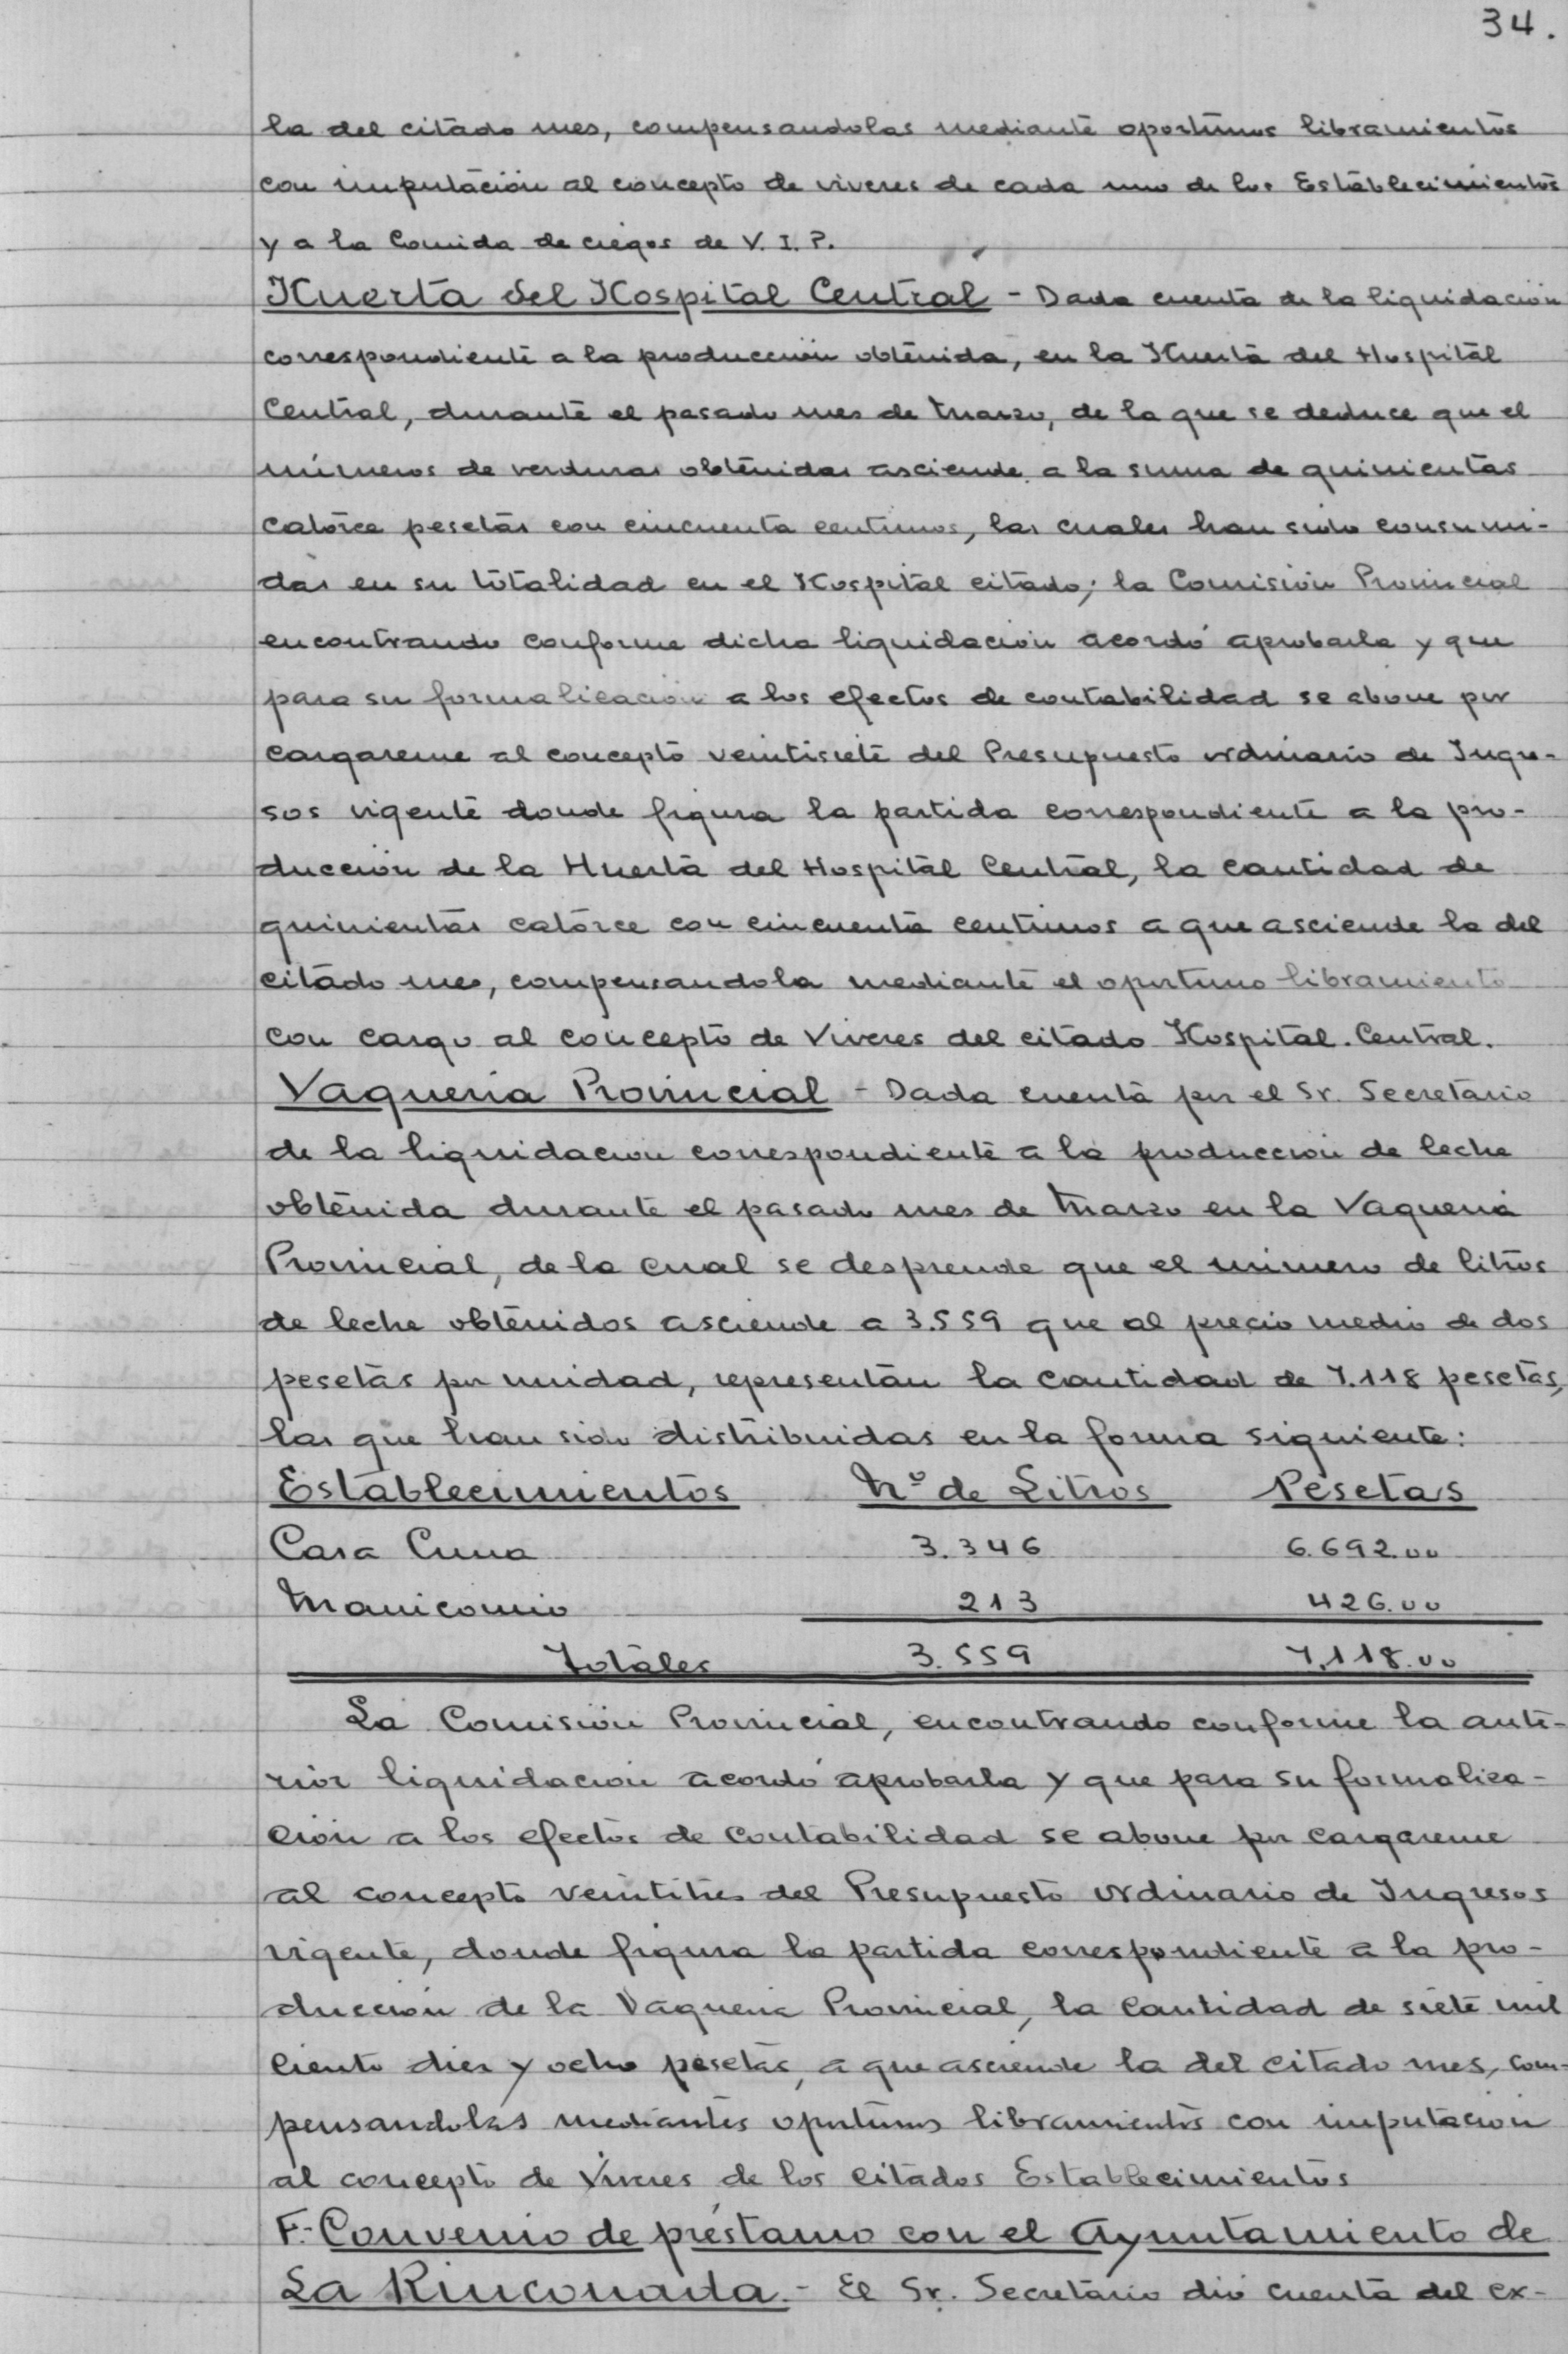 34.
la del citado mes, compensandolas mediante oportunos libramientos
con imputación al concepto de viveres de cada uno de los Establecimientos
y a la Comida de ciegos de V. I. P.
Huerta del Hospital Central - Dada cuenta de la liquidación
correspondiente a la producción obtenida, en la Huerta del Hospital
Central, durante el pasado mes de Marzo, de la que se deduce que el
números de verduras obtenidas asciende a la suma de quinientas
catorce pesetas con cincuenta centimos, las cuales han sido consumi-
das en su totalidad en el Hospital citado; la Comisión Provincial
encontrando conforme dicha liquidación acordó aprobarla y que
para su formalicación a los efectos de contabilidad se abone por
cargareme al concepto veintisiete del Presupuesto ordinario de Ingre-
sos vigente donde figura la partida correspondiente a la pro-
ducción de la Huerta del Hospital Central, la cantidad de
quinientas catorce con cincuenta centimos a que asciende la del
citado mes, compensandola mediante el oportuno libramiento
con cargo al concepto de Viveres del citado Hospital. Central.
Vaqueria Provincial - Dada cuenta por el Sr. Secretario
de la liquidación correspondiente a la producción de leche
obtenida durante el pasado mes de Marzo en la Vaqueria
Provincial, de la cual se desprende que el número de litros
de leche obtenidos asciende a 3.559 que al precio medio de dos
pesetas por unidad, representan la cantidad de 7.118 pesetas,
las que han sido distribuidas en la forma siguiente:
Establecimientos Nº de Litros Pesetas
Casa Cuna 3.346 6.692.00
Manicomio 213 426.00
Totales 3.559 7.118.00
La Comisión Provincial, encontrando conforme la ante-
rior liquidación acordó aprobarla y que para su formalica-
ción a los efectos de contabilidad se abone por cargareme
al concepto veintitres del Presupuesto ordinario de Ingresos
vigente, donde figura la partida correspondiente a la pro-
ducción de la Vaqueria Provincial, la cantidad de siete mil
ciento diez y ocho pesetas, a que asciende la del citado mes, com-
pensandolas mediantes oportunos libramientos con imputación
al concepto de Viveres de los citados Establecimientos
F.- Convenio de préstamo con el Ayuntamiento de
La Rinconada.- El Sr. Secretario dió cuenta del ex-